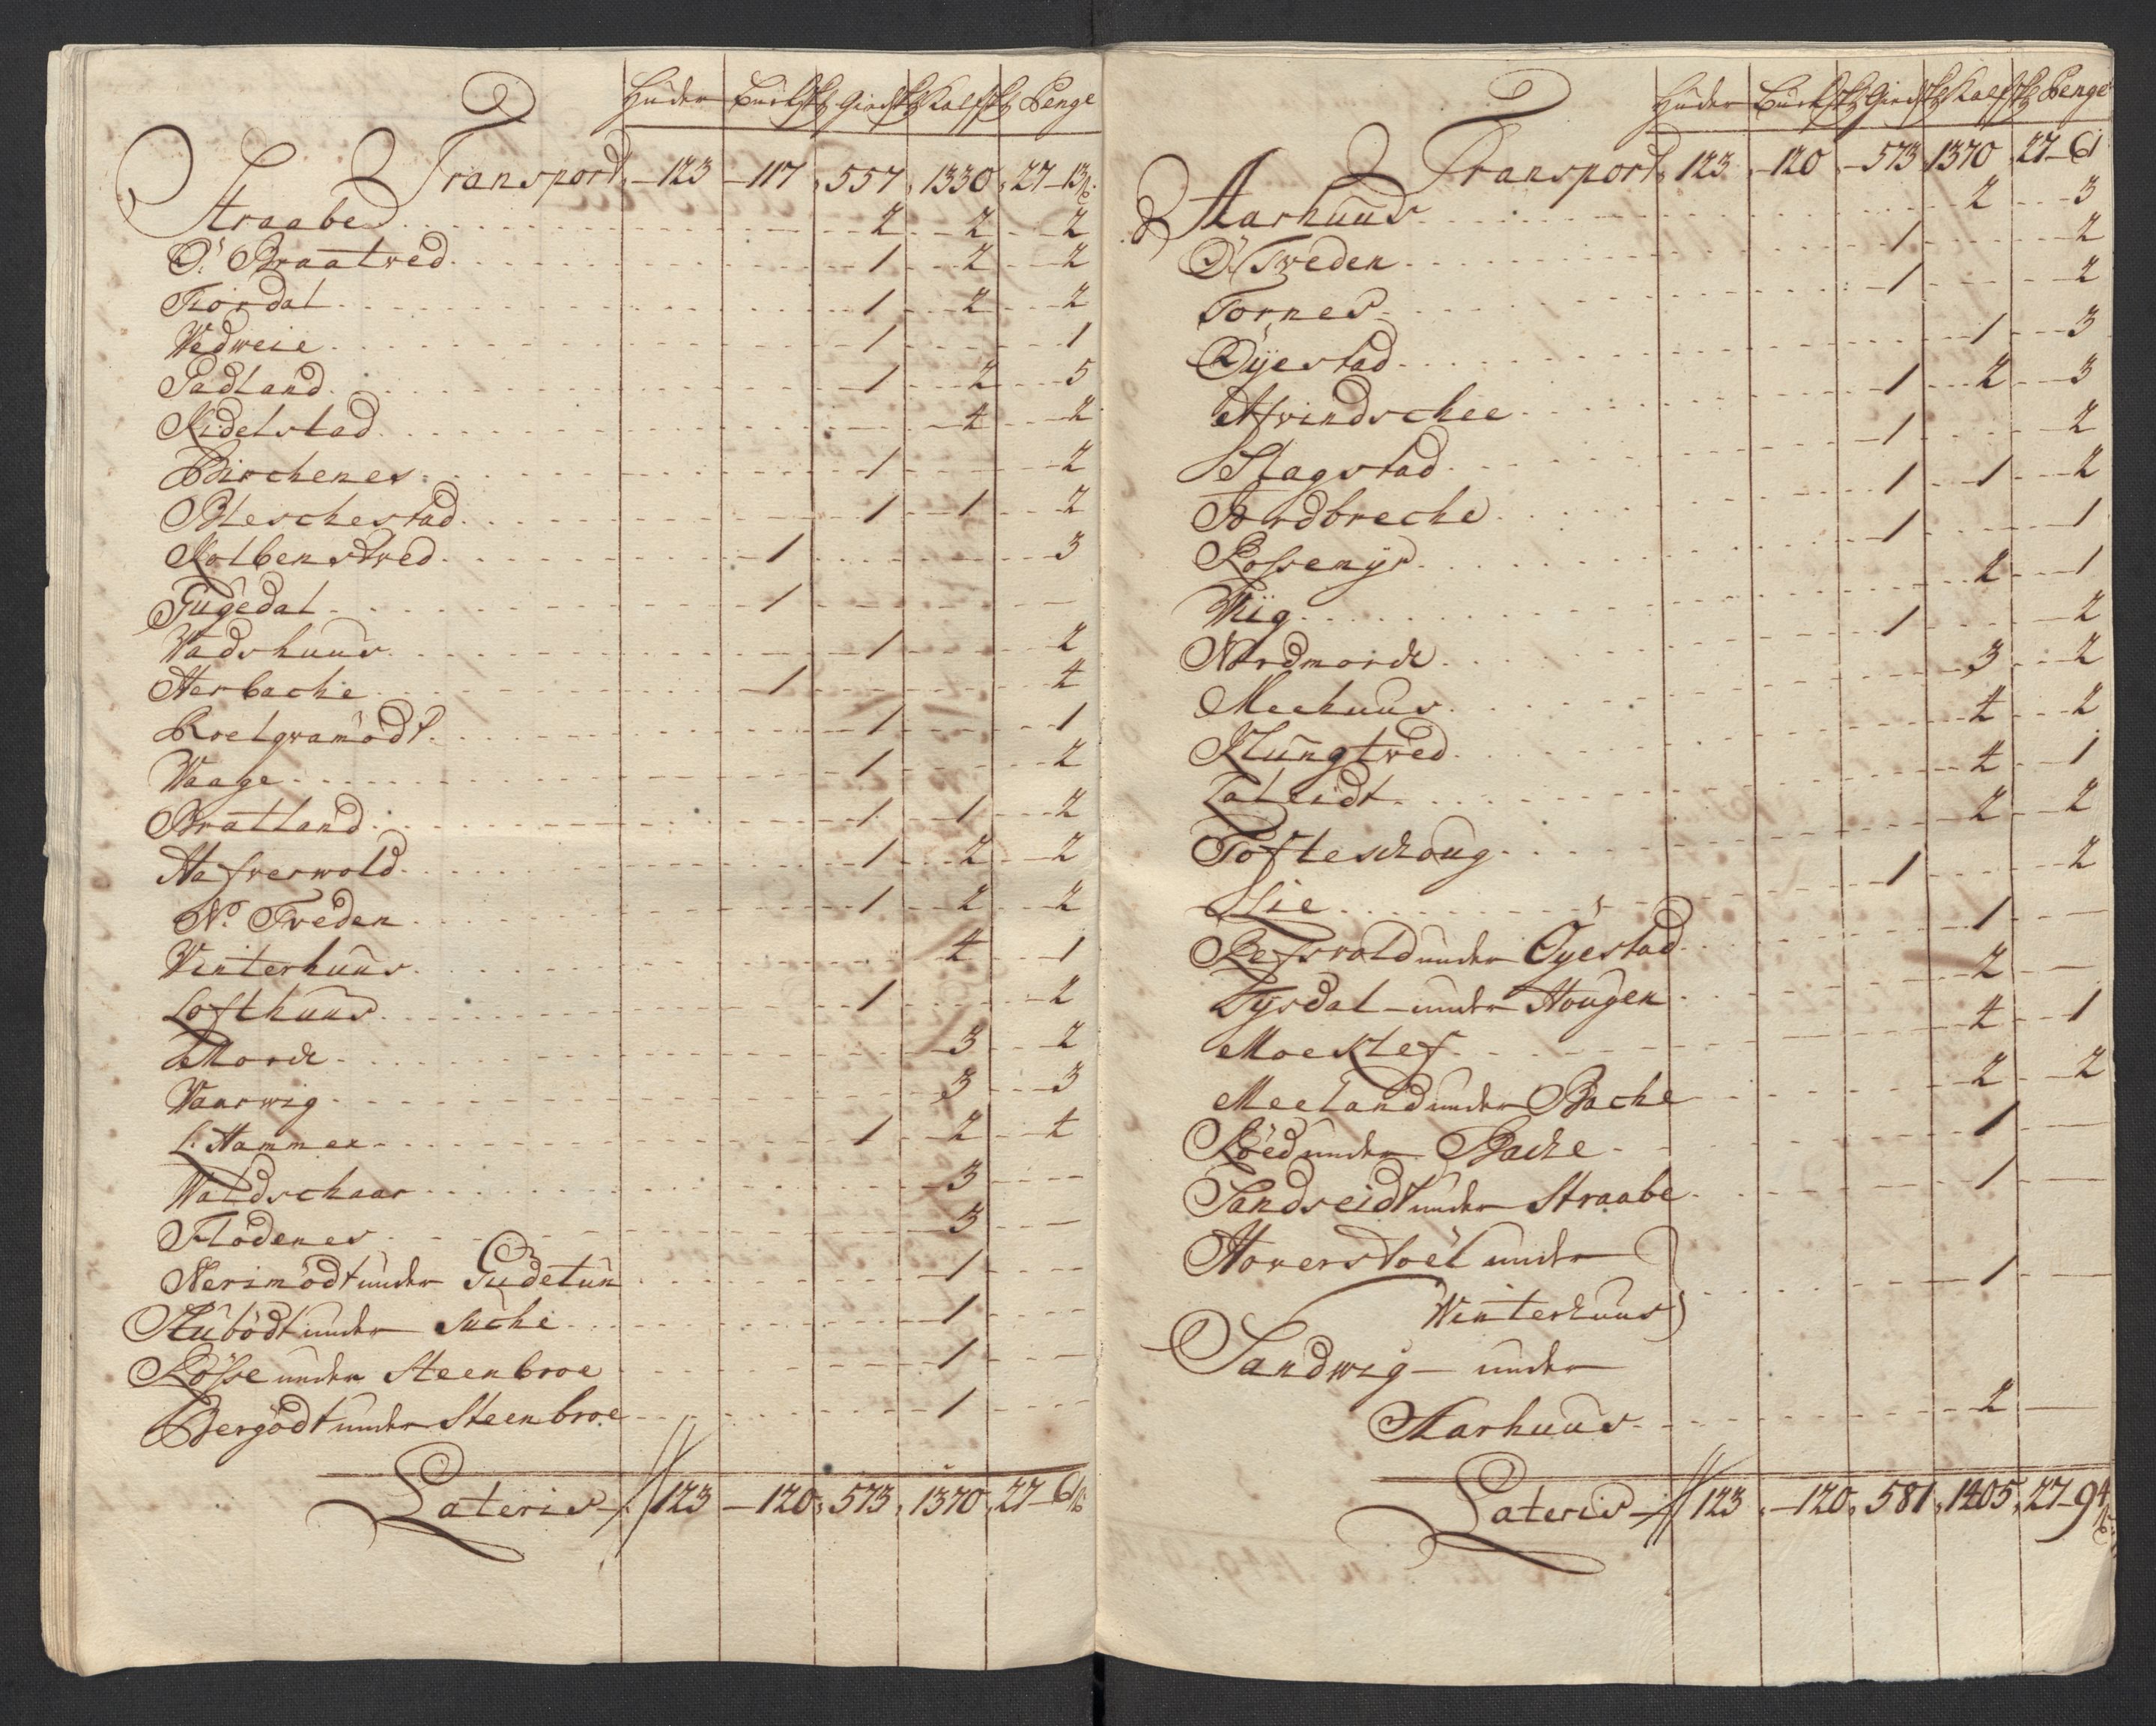 Huder Buck sk Gied sk Kalf sk Penge
Transport 123 117 557 1330 27 13
Straabe 2 2 2
Ö: Braatved 1 2 2
Fiordal 1 2 2
Wedweie 1 1
Sadland 1 2 5
Kidelstad 4 2
Birchenes 1 2
Bleschestad 1 1 2
Kolbenstved 1 3
Fugedal 1
Wadshuus 1 2
Herbache 1 4
Roelgvamödt 1 1
Waage 1 2
Bratland 1 1 2
Hafverwold 1 2 2
N: Tveden 1 2 2
Winterhuus 4 1
Lofthuus 1 2
Morck 3 2
Waarwig 3 3
L: Hammer 1 2 4
Waldschaar 3
Flödenes 3
Nerimödt under Gudetun 1
Hubödt under Suche 1
Rösse under Steenbroe 1
Bergödt under Steenbroe 1
Lateris 123 120 573 1370 27 6
Huder Buck sk Gied sk Kalf sk Penge
Transport 123 120 573 1370 27 6
Aarhuus 2 3
Ö: Tweden 1 2
Tornes 1 2
Öyestad 1 3
Afvindschee 1 2 3
Slagstad 1 2
Nordbreche 1 1 2
Rossemyr 1 1
Wiig 2 1
Nordmorck 1 2
Meehuus 3 2
Klungtved 4 2
Laleidt 4 1
Tofteschoug 2 2
Lie 1 2
Refsvold under Öyestad 1
Lysdal under Hougen 2
Moe Klef 4 1
Meeland under Bache 2 2
Röed under Bache 1
Sandseidt under Straabe 1
Howerstoel under
Winterhuus 1
Sandwig under
Aarhuus 2
Lateris 123 120 581 1405 27 94